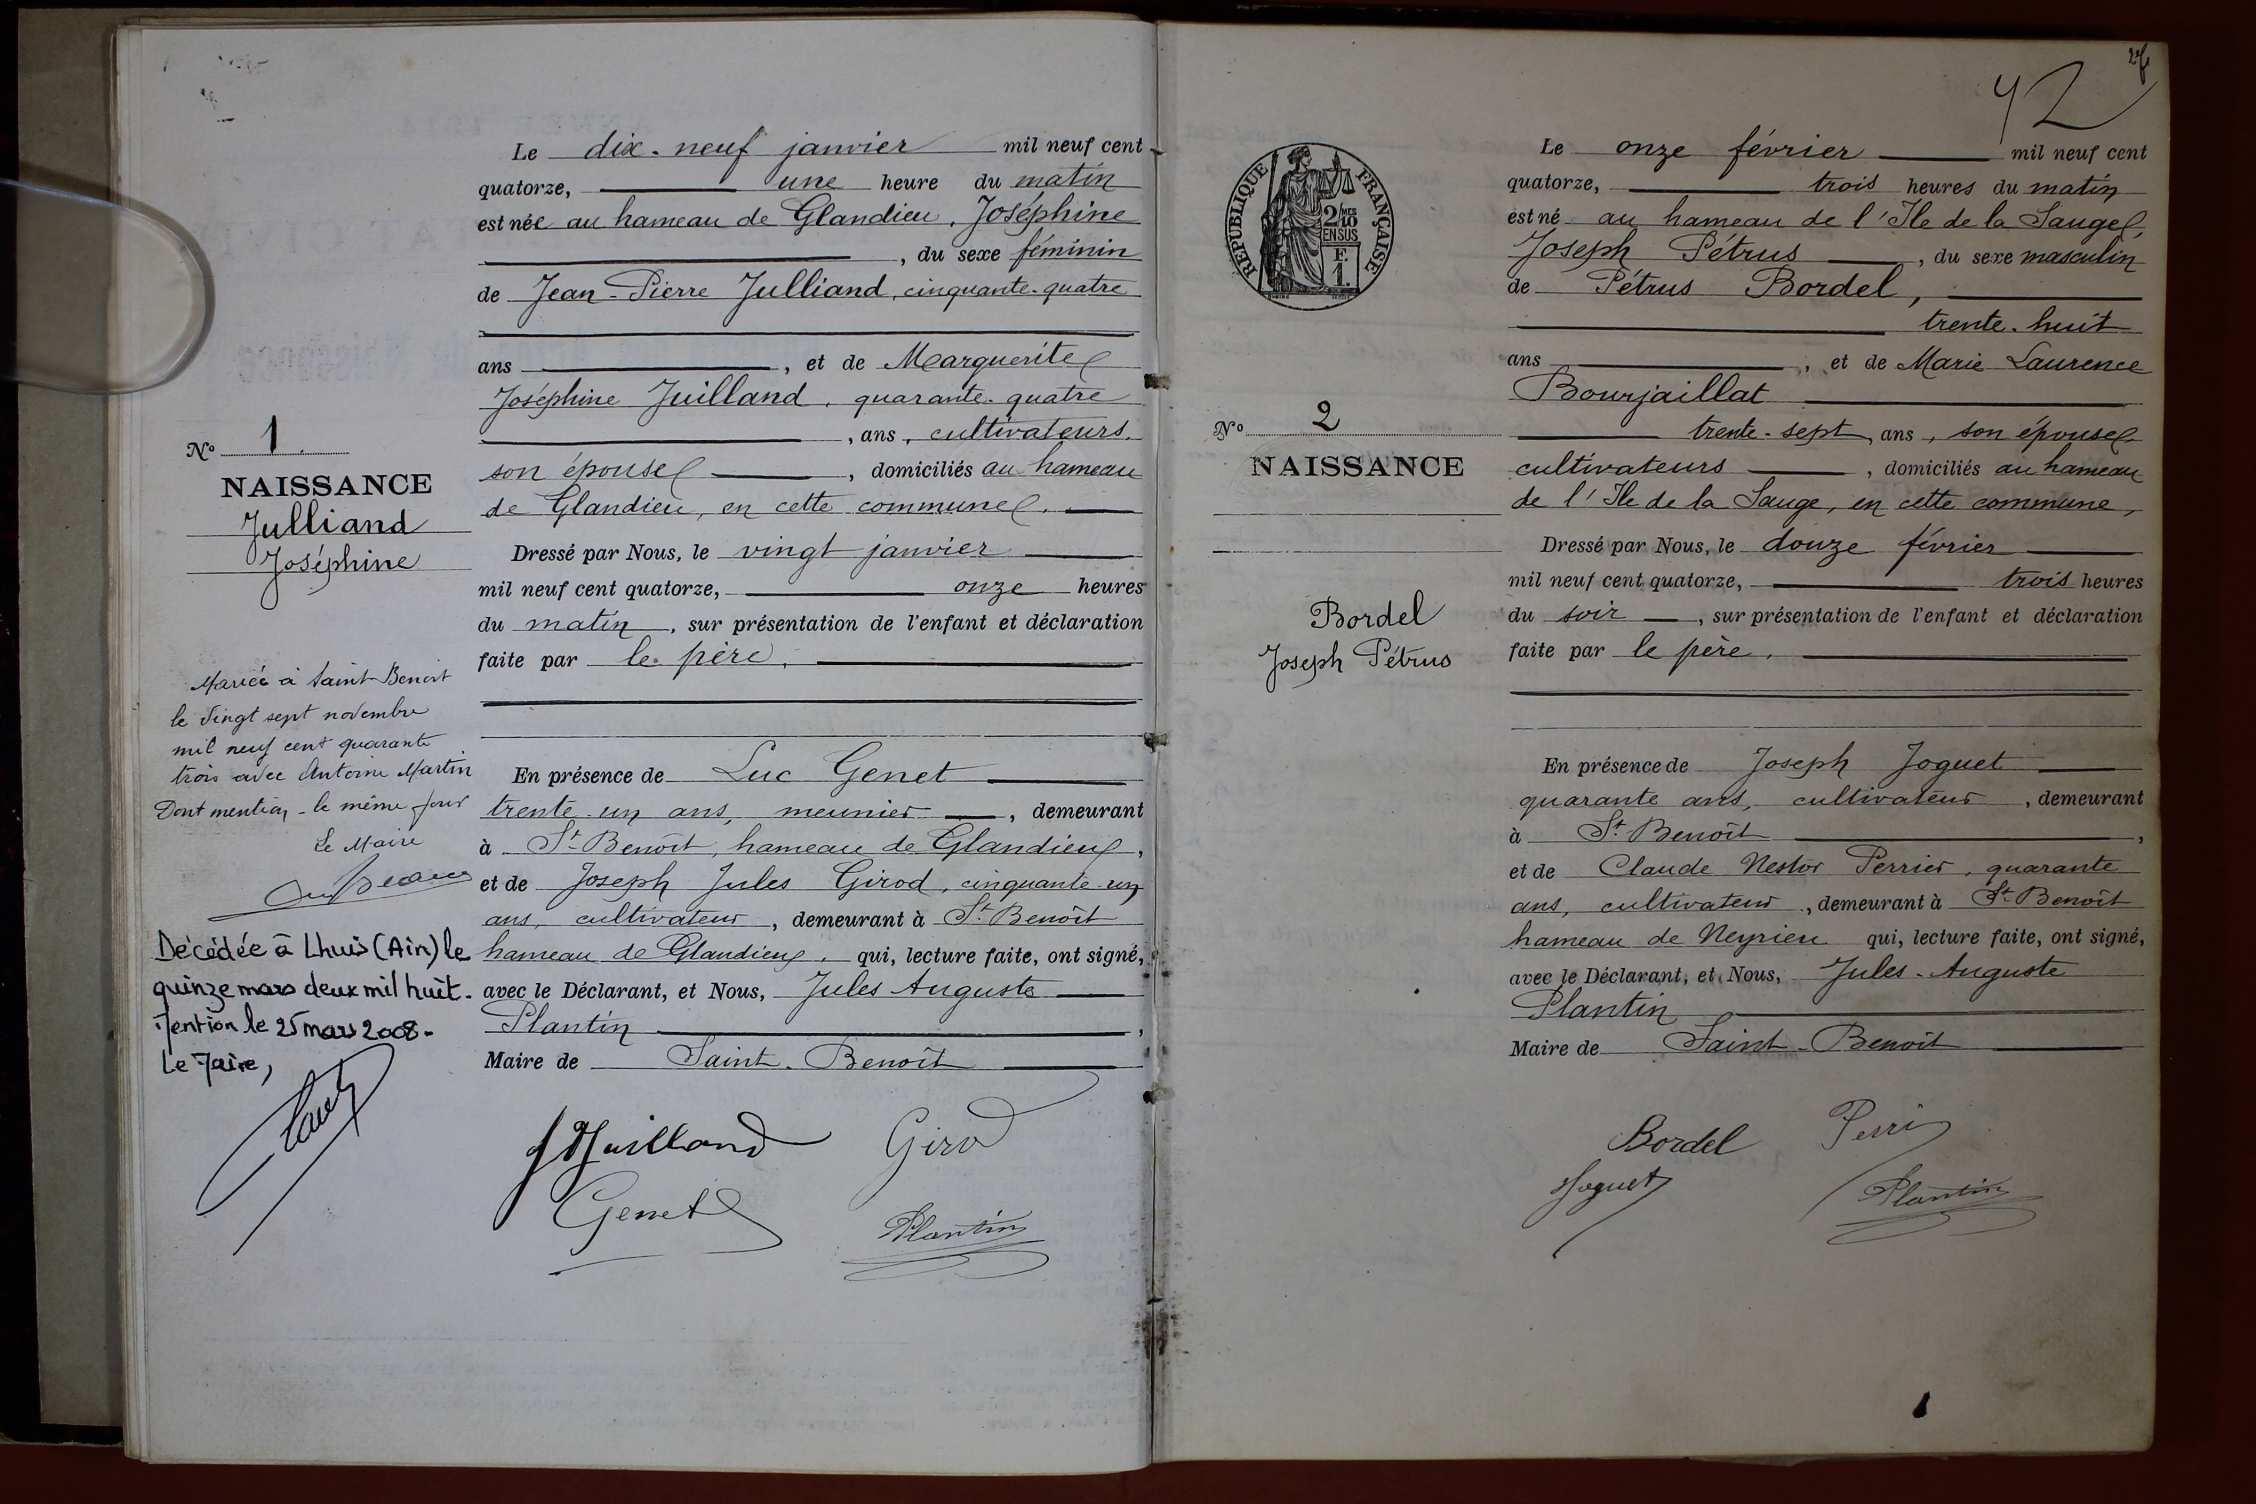 Le dix-neuf janvier mil neuf cent
quatorze, une heure du matin
est née au hameau de Glandieu, Joséphine
, du sexe féminin
de Jean-Pierre Julliand, cinquante-quatre
ans , et de Marguerite
Joséphine Juilland, quarante-quatre
, ans, cultivateurs.
son épouse , domiciliés au hameau
de Glandieu, en cette commune.
Dressé par Nous, le vingt janvier
mil neuf cent quatorze, onze heures
du matin, sur présentation de l'enfant et déclaration
faite par le père.
En présence de Luc Genet
trente-un ans, meunier , demeurant
à St-Benoît, hameau de Glandieu,
et de Joseph Jules Girod, cinquante-un
ans, cultivateur, demeurant à St-Benoît
hameau de Glandieu, qui, lecture faite, ont signé,
avec le Déclarant, et Nous, Jules Auguste
Plantin ,
Maire de Saint-Benoît
Juilland Girod
Genet Plantin
No 1.
NAISSANCE
Julliand
Joséphine
Mariée à Saint Benoit
le vingt sept novembre
mil neuf cent quarante
trois avec Antoine Martin
Dont mention le même jour
Le Maire
Décédée à Lhuis (Ain) le
quinze mars deux mil huit.
Mention le 25 mars 2008.
Le Maire,
42
RÉPUBLIQUE FRANÇAISE
2/MES
10
EN SUS
F.
1.
No 2
NAISSANCE
Bordel
Joseph Pétrus
Le onze février mil neuf cent
quatorze, trois heures du matin
est né au hameau de l'Ile de la Sauge,
Joseph Pétrus , du sexe masculin
de Pétrus Bordel,
trente-huit
ans , et de Marie Laurence
Bourjaillat
trente-sept, ans, son épouse
cultivateurs , domiciliés au hameau
de l'Ile de la Sauge, en cette commune,
Dressé par Nous, le douze février
mil neuf cent quatorze, trois heures
du soir , sur présentation de l'enfant et déclaration
faite par le père.
En présence de Joseph Joguet
quarante ans, cultivateur , demeurant
à St-Benoît ,
et de Claude Nestor Perrier, quarante
ans, cultivateur, demeurant à St-Benoît
hameau de Neyrieu qui, lecture faite, ont signé,
avec le Déclarant, et Nous, Jules-Auguste
Plantin
Maire de Saint-Benoît
Bordel
Joguet Plantin